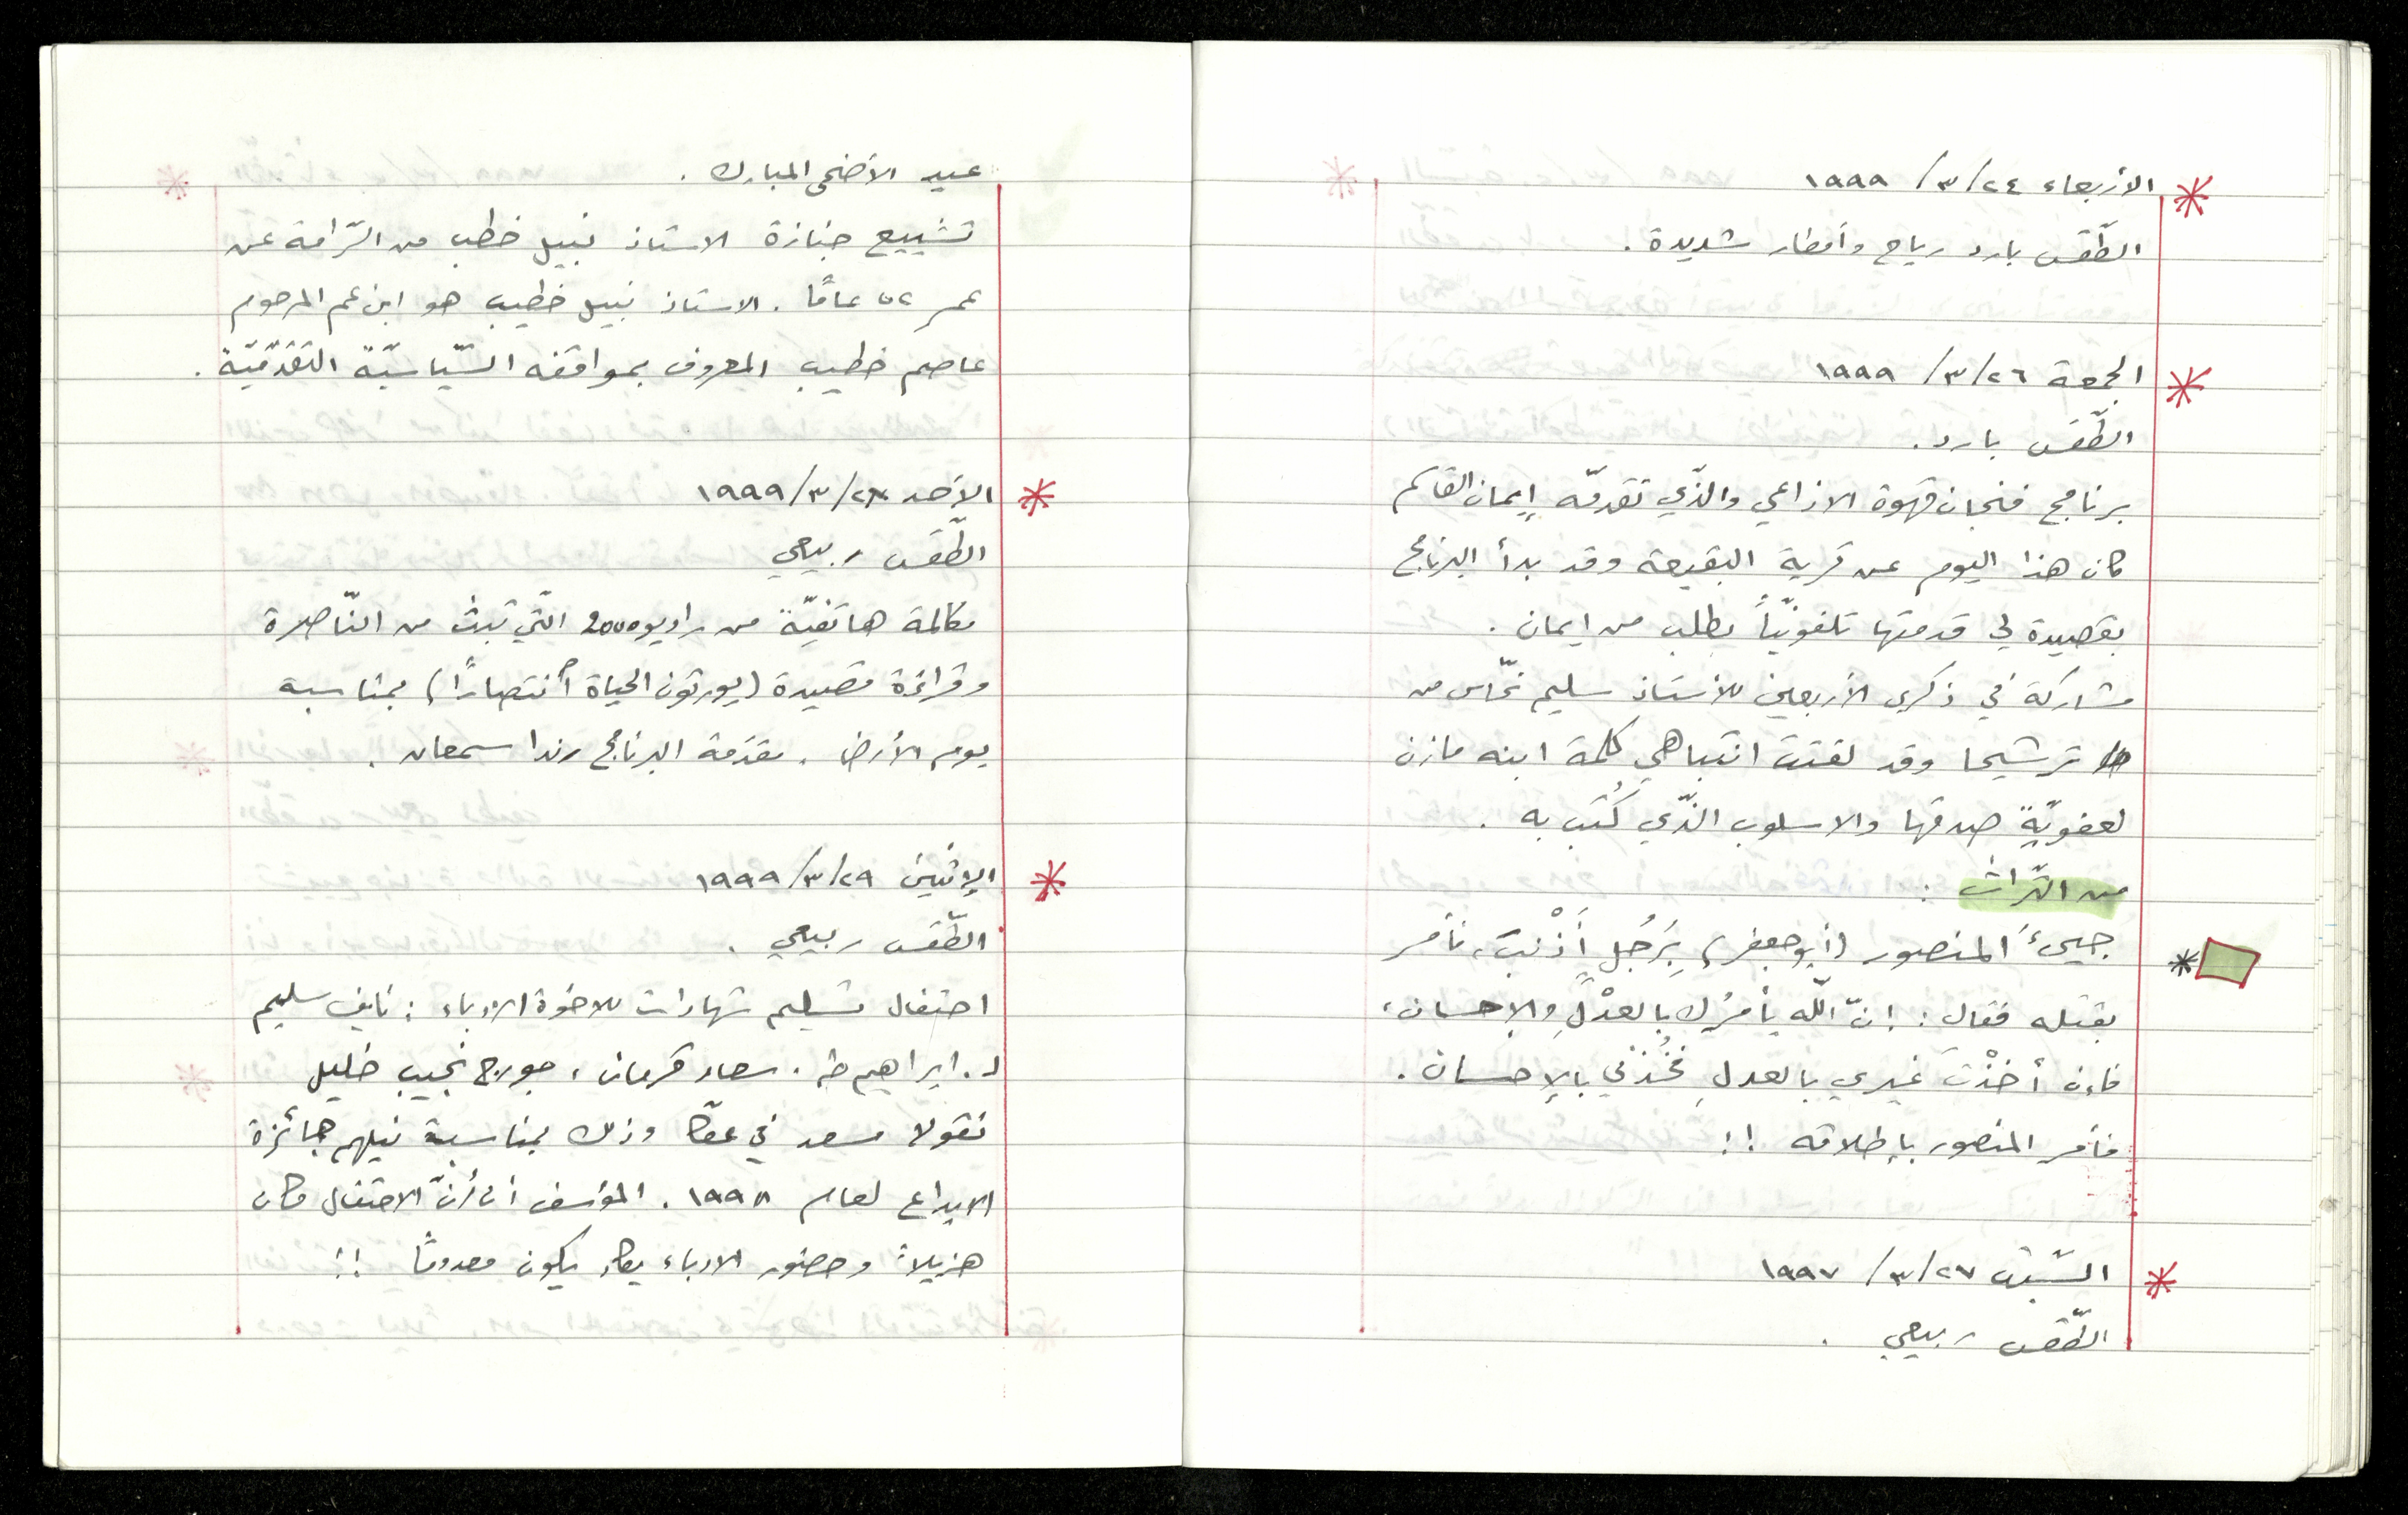 الأربعاء ٢٤/٣/ ١٩٩٩
الطّقس بارد رياح وأمطار شديدة .
الجمعة ٢٦/٣/ ١٩٩٩
الطّقس بارد .
برنامج فنجان قهوة الاذاعي والذّي تقدمّه إيمان القاسم
كان هذا اليوم عن قرية البقيعة وقد بدأ البرنامج
بقصيدة لي قدمتها تلفونيّاً بطلب من ايمان .
مشاركة في ذكرى الأربعين للأستاذ سليم نحّاس من
ترشيحا وقد لفتت انتباهي كلمة ابنه مازن
لعفويّةِ صدقها والاسلوب الذّي كُتب به .
من التّراث :
جيىءَ المنصور (أبو جعفر) بِرَجُلٍ أَذْنَبَ، فأمر
بقتله فقال : إنّ اللّه يأمُرك بالعدْلِ والإحسان،
فإن أخذْتَ غيري بالعدلِ فَخُذني بالإحسان .
فأمر المنصور بإطلاقه !!
السّبت ٢٧/٣/ ١٩٩٧
الطّقس ربيعي .
عيد الأضحى المبارك .
تشييع جنازة الاستاذ نبيل خطيب من الرّامة عن
عمر ٥٢ عامًا . الاستاذ نبيل خطيب هو ابن عم المرحوم
عاصم خطيب المعروف بمواقفه السّياسّية التقدّميّة .
الأحد ٢٨/٣/١٩٩٩
الطّقس ربيعي
مكالمة هاتفيّة من راديو 2000 التّي تبثّ من النّاصرة
وقرائة قصيدة (يورثون الحياة انتصارًا) بمناسبة
يوم الأرض . مقدّمة البرنامج رندا سمعان .
الإثنين ٢٩/٣/١٩٩٩
الطّقس ربيعي .
احتفال تسليم شهادات للاخوة الادباء : نايف سليم
د. ابراهيم طه . سعاد قرمان ، جورج نجيب خليل
نقولا مسعد في عكّا وذلك بمناسبة نيلهم جائزة
الابداع لعام ١٩٩٨ . المؤسف أن أنّ الاحتفال كان
هزيلاً وحضور الادباء يكاد يكون معدومًا !!